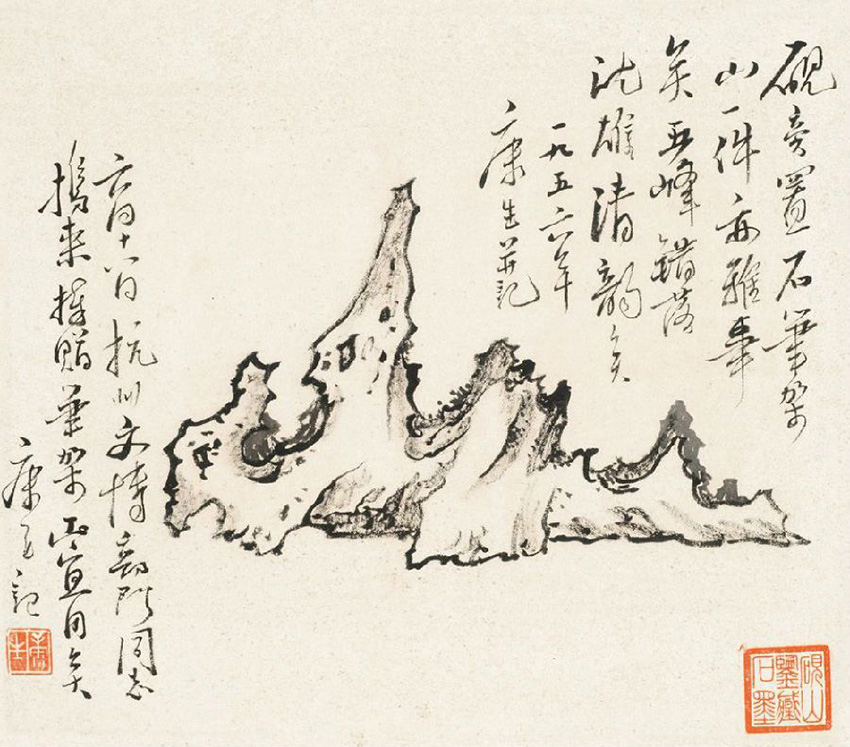 硯旁置石筆架
山一件亦雅事
矣五峰錯落
沈雄清韵矣
一九五六年
康生并記
六月十八日杭州文博部門同志
携来 贈筆架正宜用矣
康 記
康生
硯山
鑒藏
石墨